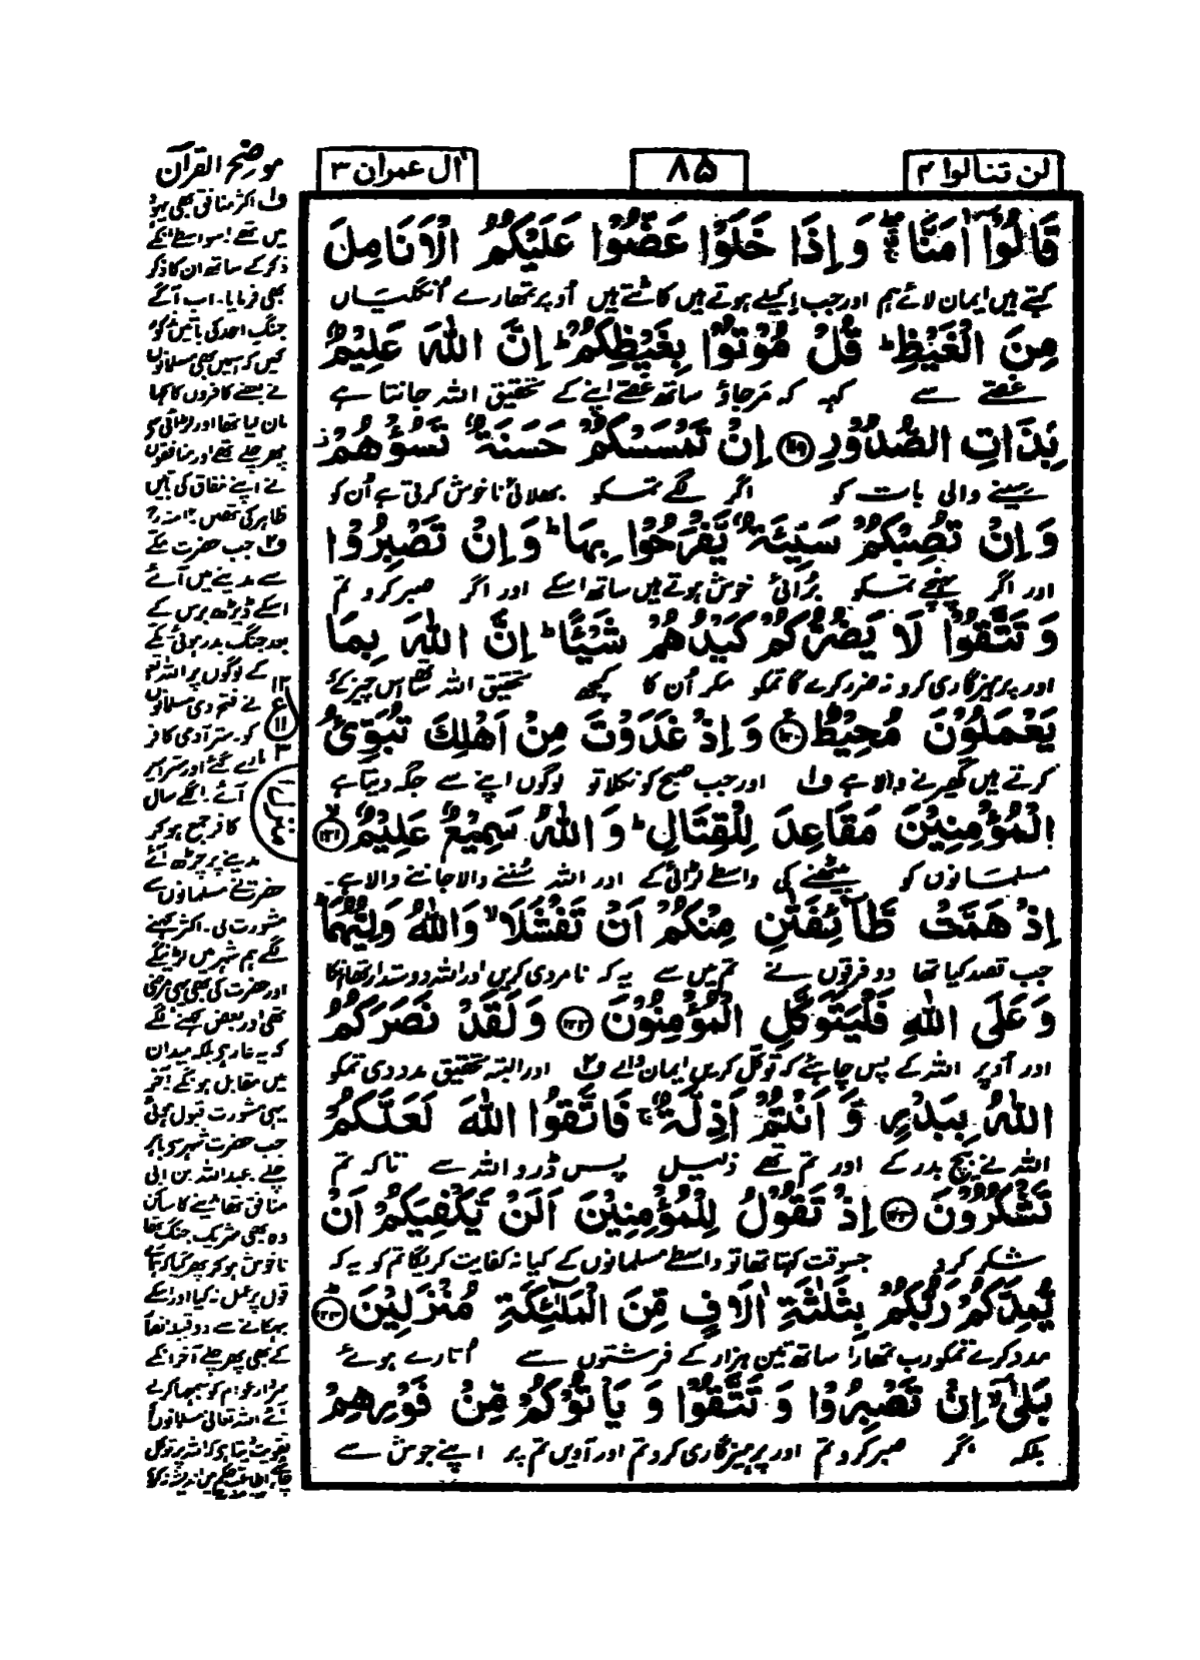 لن تنالوا ۴
۸۵
اٰل عمران ۳
قَالُوْٓا اٰمَنَّا ۖۚ وَ اِذَا خَلَوْا عَضُّوْا عَلَيْكُمُ الْاَنَامِلَ
کہتے ہیں ایمان لائے ہم اور جب اکیلے ہوتے ہیں کاٹتے ہیں اوپر تمھارے اُنگلیاں
مِنَ الْغَيْظِ ؕ قُلْ مُوْتُوْا بِغَيْظِكُمْ ؕ اِنَّ اللّٰهَ عَلِيْمٌۢ
غصّے سے کہہ کہ مرجاؤ ساتھ غصّے اپنے کے تحقیق اللہ جانتا ہے
بِذَاتِ الصُّدُوْرِ ۝۱۱۹ اِنْ تَمْسَسْكُمْ حَسَنَةٌ تَسُؤْهُمْ ز
سینے والی بات کو اگر لگے تمکو بھلائی ناخوش کرتی ہے اُن کو
وَ اِنْ تُصِبْكُمْ سَيِّئَةٌ يَّفْرَحُوْا بِهَا ؕ وَ اِنْ تَصْبِرُوْا
اور اگر پہنچے تمسکو بُرائی خوش ہوتے ہیں ساتھ اسکے اور اگر صبر کرو تم
وَ تَتَّقُوْا لَا يَضُرُّكُمْ كَيْدُهُمْ شَيْـًٔا ؕ اِنَّ اللّٰهَ بِمَا
اور پرہیزگاری کرو نہ ضرر کرے گا تمکو مکر اُن کا کچھ تحقیق اللہ ساتھ اس چیز کے
يَعْمَلُوْنَ مُحِيْطٌ ۝۱۲۰ وَ اِذْ غَدَوْتَ مِنْ اَهْلِكَ تُبَوِّئُ
کرتے ہیں گھیرنے والا ہے ف۱ اور جب صبح کو نکلا تو لوگوں اپنے سے جگہ دیتا ہے
الْمُؤْمِنِيْنَ مَقَاعِدَ لِلْقِتَالِ ؕ وَ اللّٰهُ سَمِيْعٌ عَلِيْمٌ ۝۱۲۱
مسلمانوں کو بیٹھنے کی واسطے لڑائی کے اور اللہ سُننے والا جاننے والا ہے۔
اِذْ هَمَّتْ طَّآئِفَتٰنِ مِنْكُمْ اَنْ تَفْشَلَا ۙ وَاللّٰهُ وَلِيُّهُمَا ؕ
جب قصد کیا تھا دو فرقوں نے تم میں سے یہ کہ نامردی کریں اور اللہ دوستدار تھا انکا
وَ عَلَى اللّٰهِ فَلْيَتَوَكَّلِ الْمُؤْمِنُوْنَ ۝۱۲۲ وَ لَقَدْ نَصَرَكُمُ
اور اُوپر اللہ کے پس چاہئے کہ توکّل کریں ایمان والے ف۲ اور البتہ تحقیق مدد دی تمکو
اللّٰهُ بِبَدْرٍ وَّ اَنْتُمْ اَذِلَّةٌ ۚ فَاتَّقُوا اللّٰهَ لَعَلَّكُمْ
اللہ نے بیچ بدر کے اور تم تھے ذلیل پس ڈرو اللہ سے تاکہ تم
تَشْكُرُوْنَ ۝۱۲۳ اِذْ تَقُوْلُ لِلْمُؤْمِنِيْنَ اَلَنْ يَّكْفِيَكُمْ اَنْ
شکر کرو جس وقت کہتا تھا تو واسطے مسلمانوں کے کیا نہ کفایت کریگا تم کو یہ کہ
يُّمِدَّكُمْ رَبُّكُمْ بِثَلٰثَةِ اٰلَافٍ مِّنَ الْمَلٰٓئِكَةِ مُنْزَلِيْنَ ۝۱۲۴
مدد کرے تمکو رب تمھارا ساتھ تین ہزار کے فرشتوں سے اُتارے ہوئے
بَلٰٓى ۙ اِنْ تَصْبِرُوْا وَ تَتَّقُوْا وَ يَاْتُوْكُمْ مِّنْ فَوْرِهِمْ
بلکہ اگر صبر کرو تم اور پرہیزگاری کرو تم اور آویں تم پر اپنے جوش سے
موضح القرآن
ف۱ اکثر منافق بھی یہود
میں تھے اسواسطے انکے
ذکر کے ساتھ ان کا ذکر
بھی فرمایا۔ اب آگے
جنگِ احد کی باتیں
کہ اس میں بھی مسلمانوں
نے بعضے کافروں کا کہا
مان لیا تھا اور لڑائی سے
پھر چلے تھے اور منافقوں
نے اپنے نفاق کی باتیں
ظاہر کی تھیں
ف۲ جب حضرت مکے
سے مدینے میں آئے
اسکے ڈیڑھ برس کے
بعد جنگ بدر ہوئی مکے
کے لوگوں پر اللہ تعا
نے فتح دی مسلمانوں
کو۔ ستر آدمی کافر
مارے گئے اور ستر اسیر
آئے۔ اگلے سال
کافر جمع ہو کر
مدینے پر چڑھ آئے
حضرت نے مسلمانوں سے
مشورت لی۔ اکثر کہنے
لگے ہم شہر میں لڑینگے
اور حضرت کی بھی یہی مرضی
تھی اور بعض کہنے لگے
کہ یہ عار ہے بلکہ میدان
میں مقابل ہونگے آخر
یہی مشورت قبول ہوئی
جب حضرت شہر سے باہر
چلے۔ عبداللہ بن ابی
منافق تھا مدینے کا ساکن
وہ بھی شریک جنگ تھا
ناخوش ہو کر پھر گیا
قول پر عمل نہ کیا اور اسکے
بہکانے سے دو قبیلے
کے بھی پھر چلے آخر انکے
سردار عوام کو سمجھا کر لے
آئے اللہ تعالیٰ مسلمانوں کو
تقویت دیتا ہے کہ اللہ پر توکل
۱۲
ع
۱۱
۳